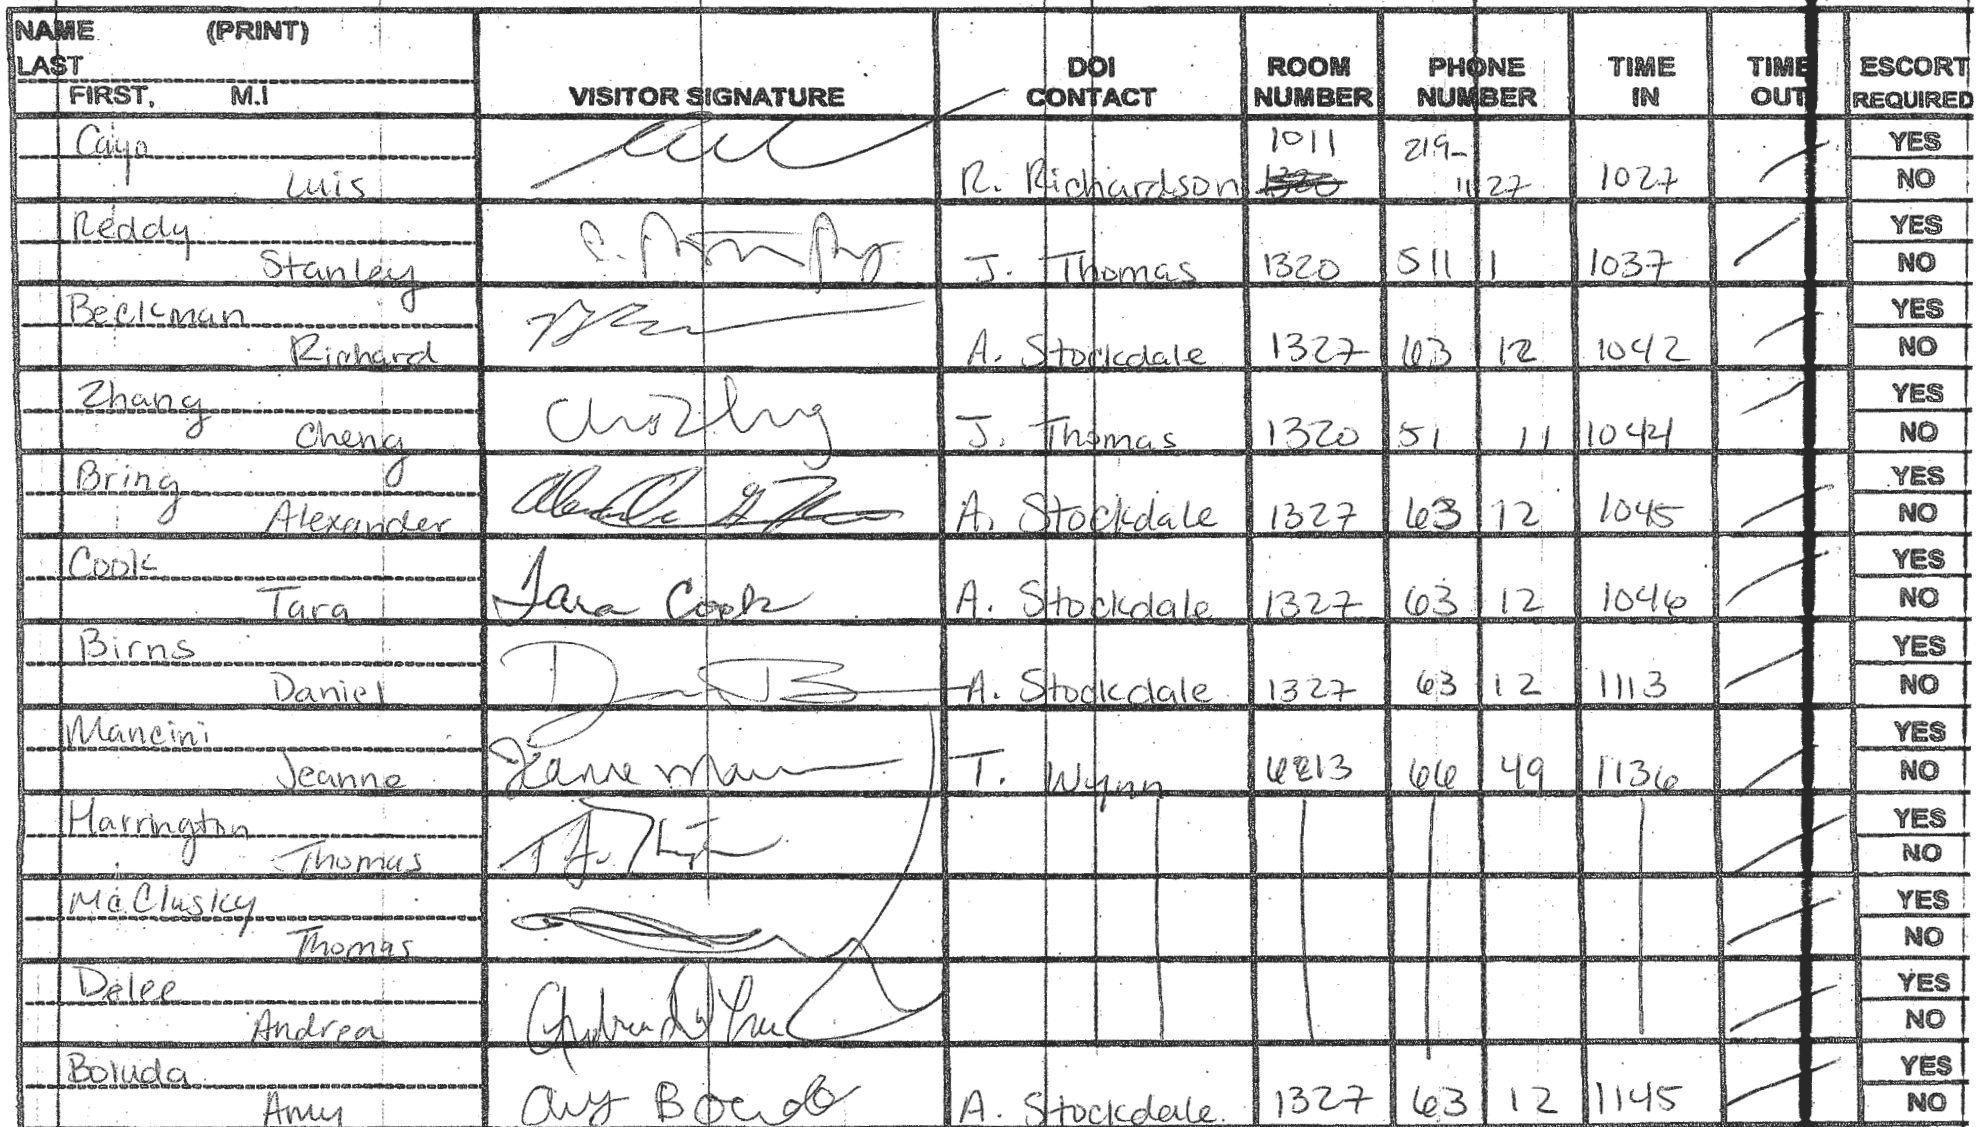 NAME (PRINT)
LAST
FIRST, M.I
VISITOR SIGNATURE
DOI CONTACT
ROOM NUMBER
PHONE NUMBER
TIME IN
TIME OUT
ESCORT REQUIRED
Cayo 1011 219- YES
Luis R. Richardson 1127 1027 NO
Reddy YES
Stanley J. Thomas 1320 5111 1037 NO
Beckman YES
Richard A. Stockdale 1327 6312 1042 NO
Zhang YES
Cheng J. Thomas 1320 5111 1044 NO
Bring YES
Alexander A. Stockdale 1327 6312 1045 NO
Cook YES
Tara Tara Cook A. Stockdale 1327 6312 1046 NO
Birns YES
Daniel A. Stockdale 1327 6312 1113 NO
Mancini YES
Jeanne T. Wynn 6649 1136 NO
Harrington YES
Thomas NO
McClusky YES
Thomas NO
Delee YES
Andrea NO
Boluda YES
Amy A. Stockdale 1327 6312 1145 NO